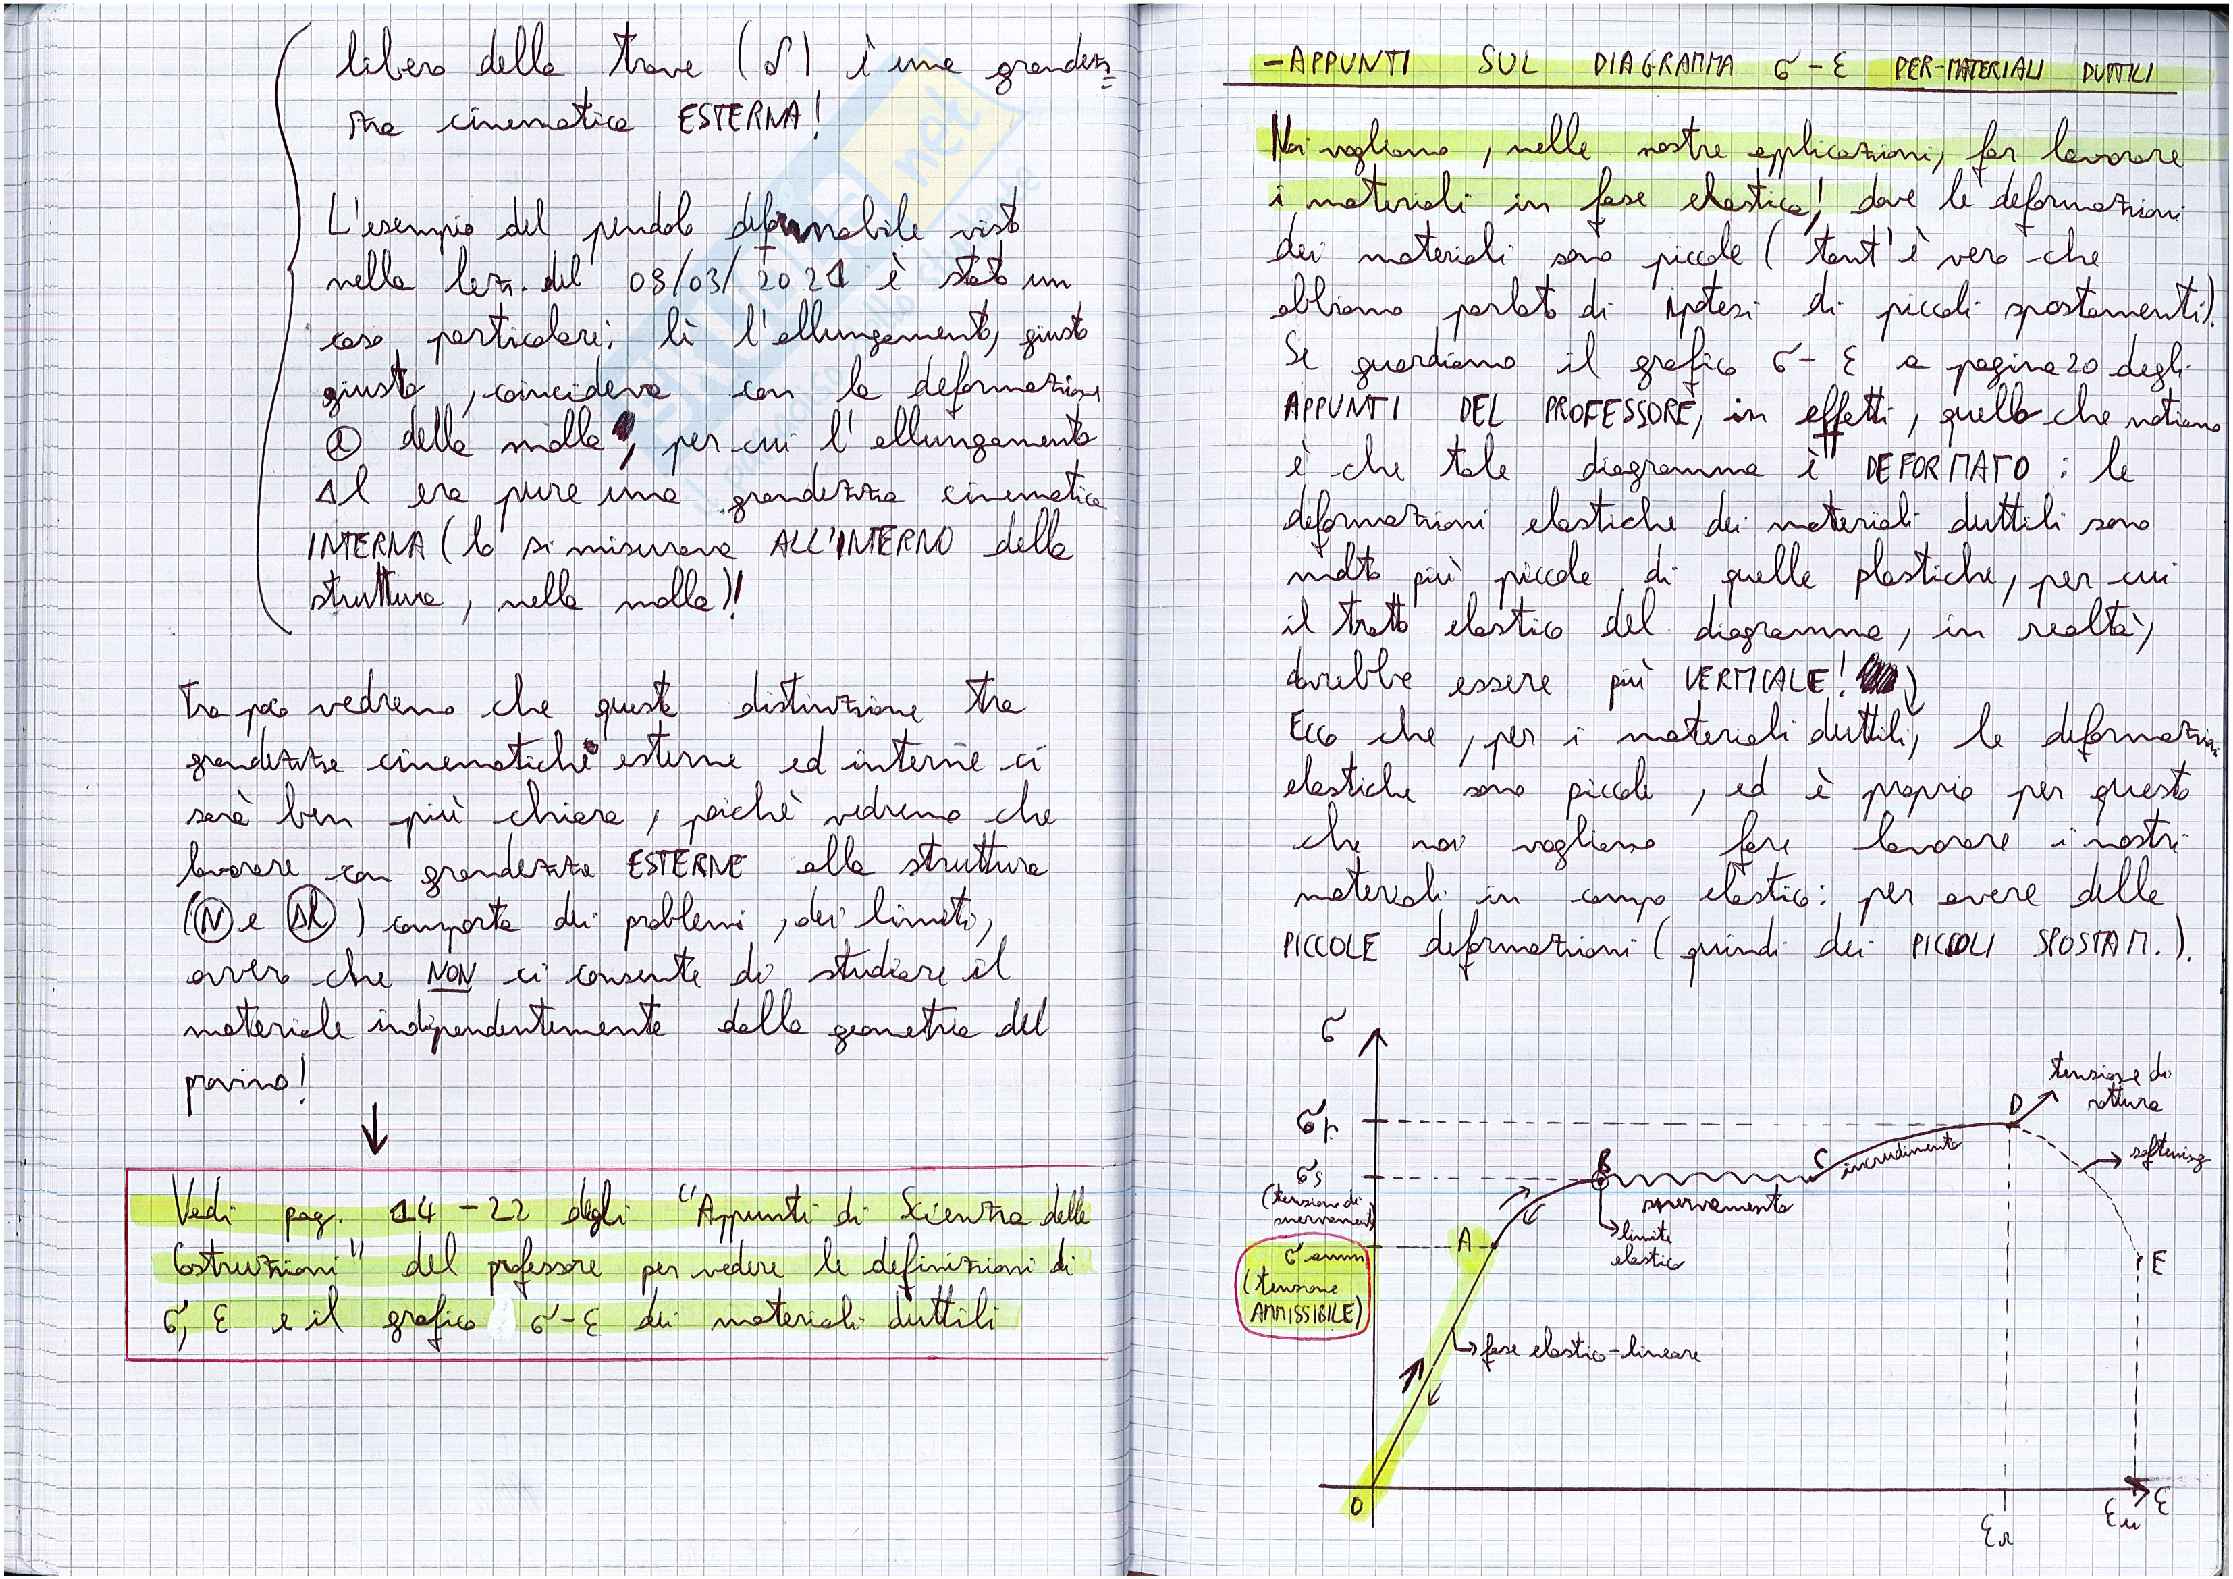 libero della trave (δ) è una grandez
za cinematica ESTERNA!
L'esempio del pendolo deformabile visto
nella lez. del 08/03/2021 è stato un
caso particolare; lì l'allungamento, giusto
giusto, coincideva con la deformazione
della molla, per cui l'allungamento
Δl era pure una grandezza cinematica
INTERNA (lo si misurava ALL'INTERNO della
struttura, nella molla)!
Tra poco vedremo che questa distinzione tra
grandezze cinematiche esterne ed interne ci
sarà ben più chiara, poichè vedremo che
lavorare con grandezze ESTERNE alla struttura
(N e Δl) comporta dei problemi, dei limiti,
ovvero che NON ci consente di studiare il
materiale indipendentemente dalla geometria del
provino!
↓
Vedi pag. 14-22 degli "Appunti di Scienza delle
Costruzioni" del professore per vedere le definizioni di
σ, ε e il grafico σ-ε dei materiali duttili
-APPUNTI SUL DIAGRAMMA σ-ε PER MATERIALI DUTTILI
Noi vogliamo, nelle nostre applicazioni, far lavorare
i materiali in fase elastica, dove le deformazioni
dei materiali sono piccole (tant'è vero che
abbiamo parlato di ipotesi di piccoli spostamenti).
Se guardiamo il grafico σ-ε a pagina 20 degli
APPUNTI DEL PROFESSORE, in effetti, quello che notiamo
è che tale diagramma è DEFORMATO: le
deformazioni elastiche dei materiali duttili sono
molto più piccole di quelle plastiche, per cui
il tratto elastico del diagramma, in realtà,
dovrebbe essere più VERTICALE!
Ecco che, per i materiali duttili, le deformazioni
elastiche sono piccole, ed è proprio per questo
che noi vogliamo fare lavorare i nostri
materiali in campo elastico: per avere delle
PICCOLE deformazioni (quindi dei PICCOLI SPOSTAM.).
σ
tensione di
rottura
D
σr
softening
B
C
incrudimento
σs
(tensione di
snervamento
snervamento
limite
elastico
A
σamm
(tensione
AMMISSIBILE)
E
fase elastico-lineare
O
εr
εu
ε